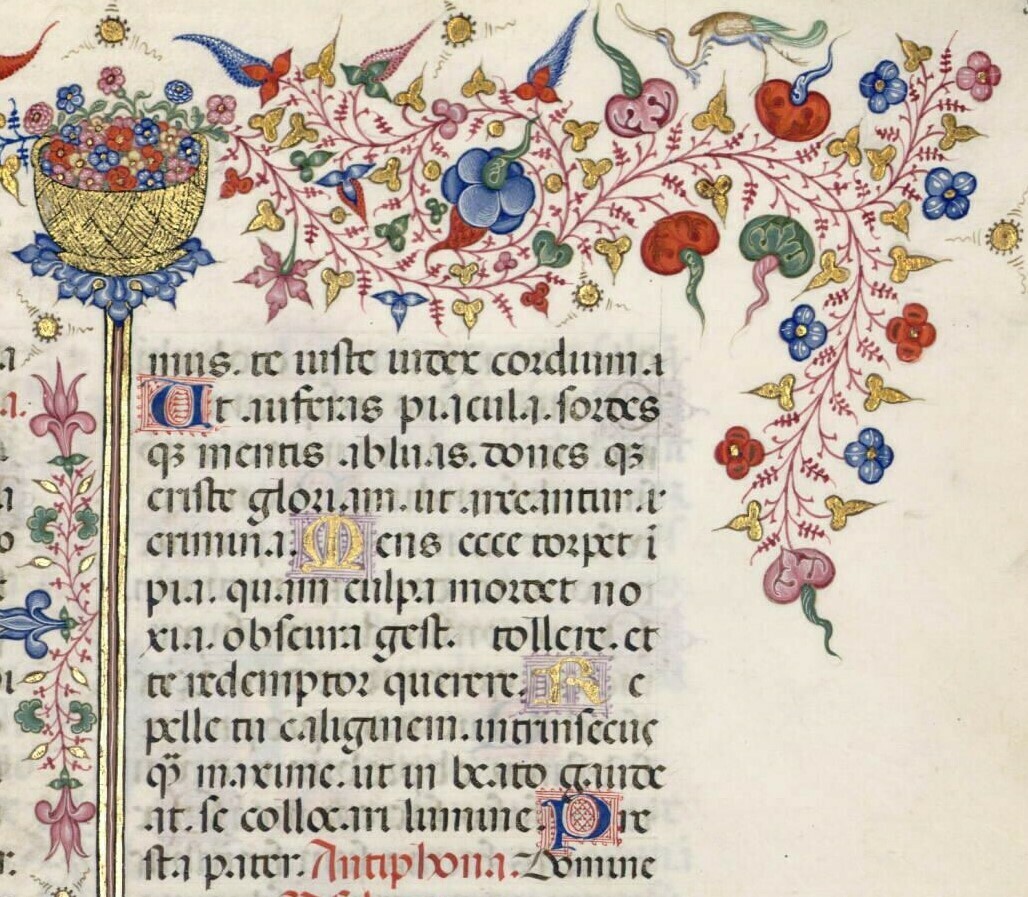 mus. te iuste iudex cordium.
Ut auferas piacula. sordes
qȝ mentis abluas. dones qȝ
criste gloriam. ut arceantur.
crimina. Mens ecce torpet ī
pia. quam culpa mordet no
xia. obscura gest. tollere. et
te redemptor querere. Re
pelle tu caliginem. intrinsecus
q̄ maxime. ut in beato gaude
at. se collocari lumine. Pre
sta pater. Antiphona. Domine